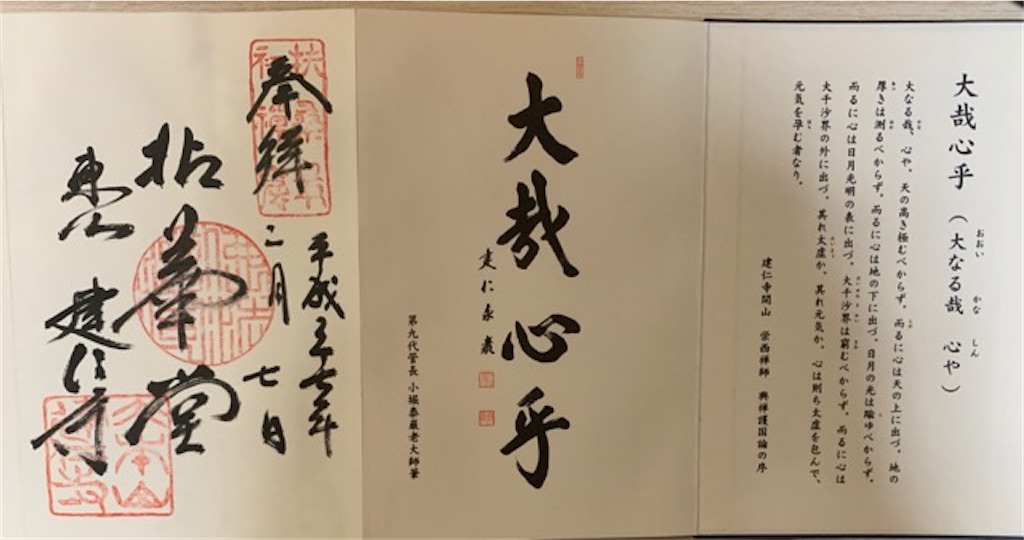 大哉心乎(大なる哉 心や)
大なる哉、心や、天の高き極むべからず、而るに心は天の上に出づ、地の
厚きは測るべからず、而るに心は地の下に出づ、日月の光は踰ゆべからず、
而るに心は日月光明の表に出づ、大千沙界は窮むべからず、而るに心は
大千沙界の外に出づ、其れ太虚か、其れ元気か、心は則ち太虚を包んで、
元気を孕む者なり。
建仁寺開山 栄西禅師 興禅護国論の序
大哉心乎
建仁泰巌
第九代管長 小堀泰巌老大師筆
奉拝
平成三 年
二月七日
拈華堂
東山 建仁寺